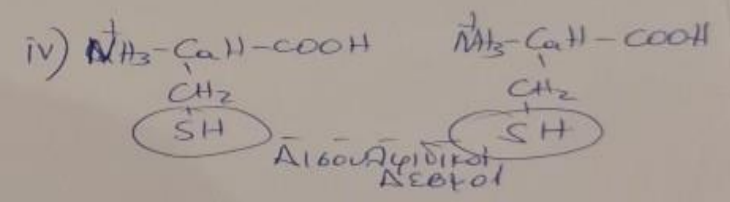 iv) NH₃⁺-CaH-COOH NH₃⁺-CaH-COOH
CH₂ CH₂
SH SH
Δισουλφιδικοί
Δεσμοί